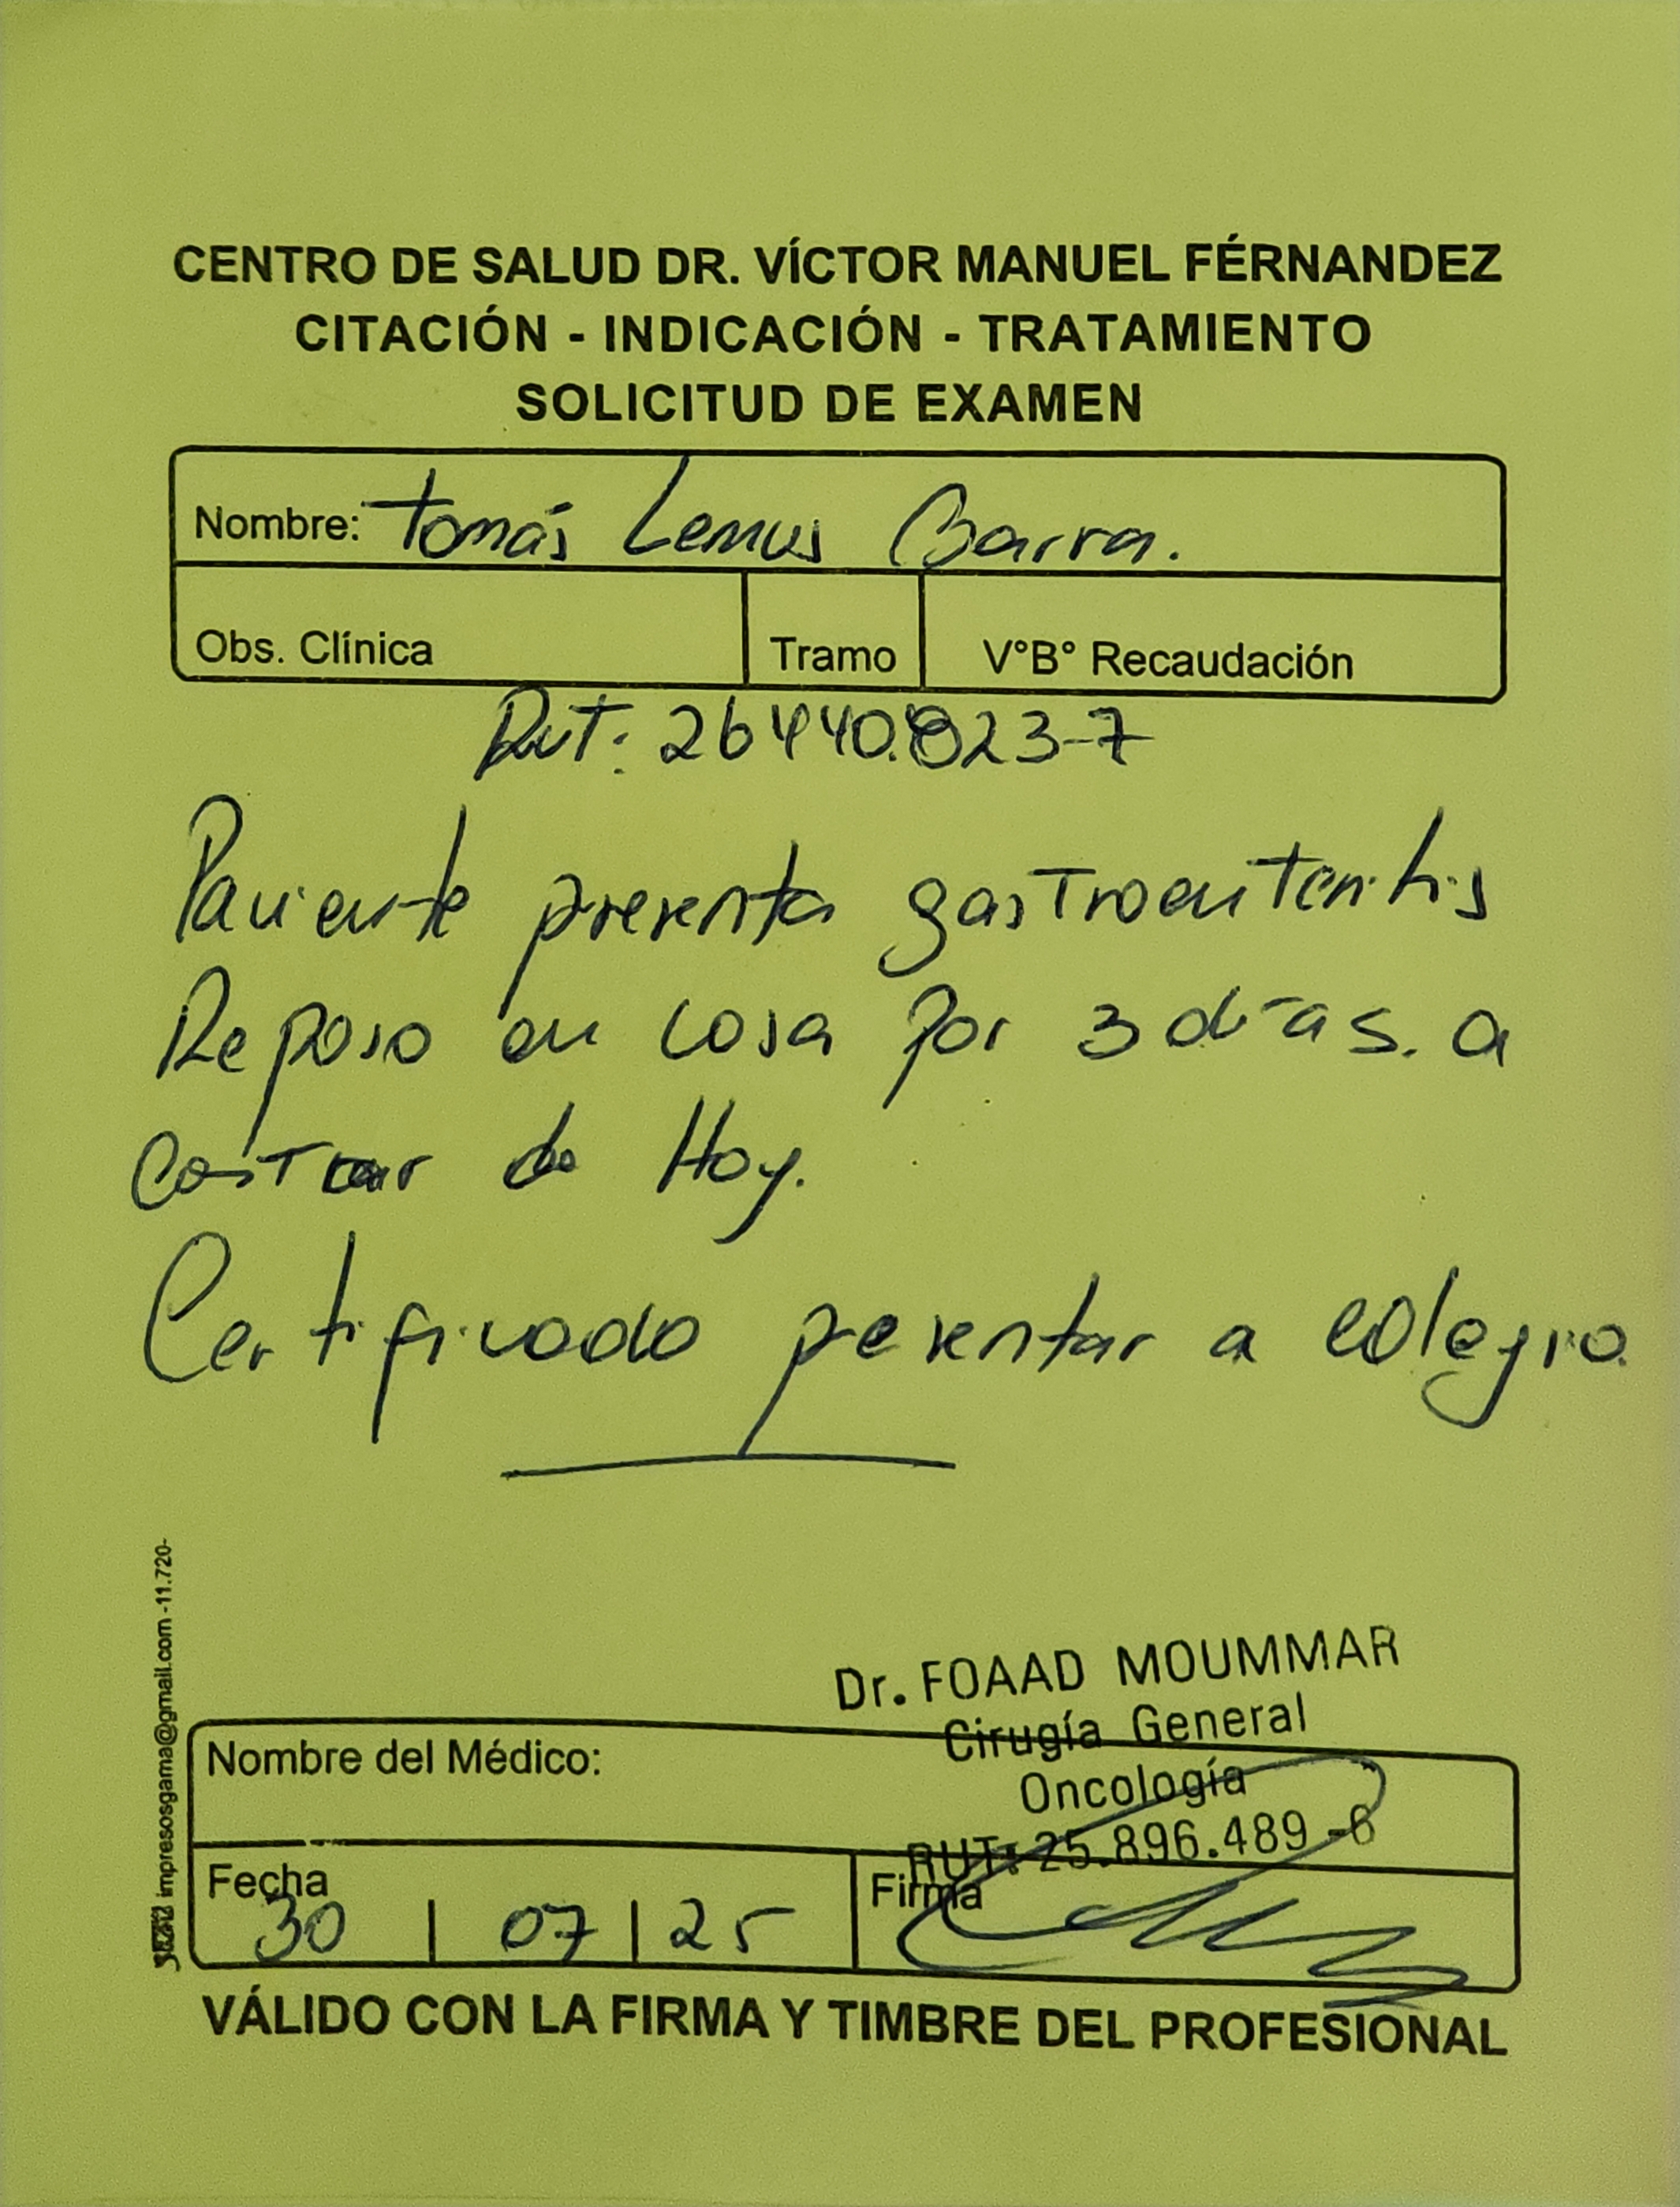 CENTRO DE SALUD DR. VÍCTOR MANUEL FÉRNANDEZ
CITACIÓN - INDICACIÓN - TRATAMIENTO
SOLICITUD DE EXAMEN
Nombre: Tomás Lemus Barra.
Obs. Clínica Tramo V°B° Recaudación
Rut: 26440.823-7
Paciente presenta gastroenteritis
Reposo en casa por 3 días. a
de Hoy.
Certificado pesentar a colegio.
impresosgama@gmail.com -11.720-
Dr. FOAAD MOUMMAR
Cirugía General
Oncología
RUT: 25.896.489-6
Nombre del Médico:
Fecha 30 | 07 | 25 Firma
VÁLIDO CON LA FIRMA Y TIMBRE DEL PROFESIONAL